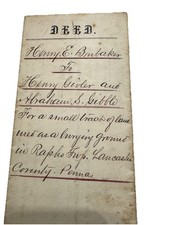 DEED.
Henry E. Brubaker
To
Henry Gibler and
Abraham S. Gibble
For a small tract of land
used as a burying ground
in Rapho Twp. Lancaster
County Penna